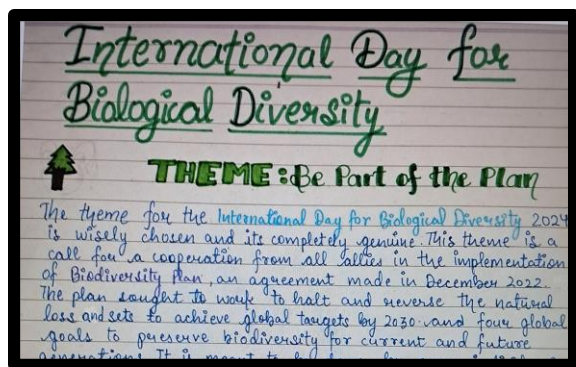 International Day for
Biological Diversity
THEME: Be Part of the Plan
The theme for the International Day for Biological Diversity 2024
is wisely chosen and its completely genuine. This theme is a
call for a cooperation from all allies in the implementation
of Biodiversity plan, an agreement made in December 2022.
The plan sought to work to halt and reverse the natural
loss and sets to achieve global targets by 2030 and four global
goals to preserve biodiversity for current and future
generations. It is meant to